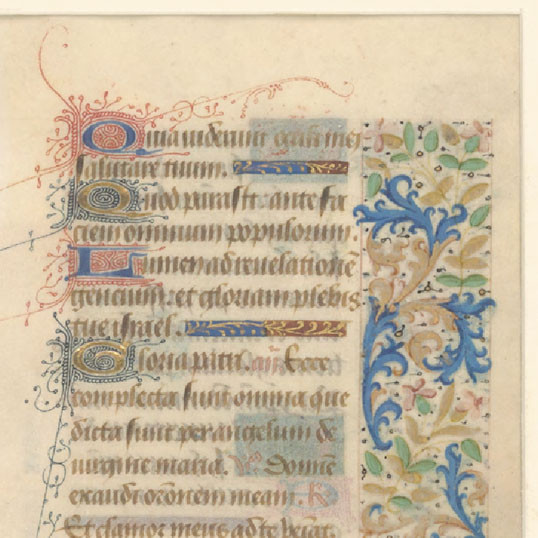 Quia viderunt oculi mei
salutare tuum.
Quod parasti. ante fa
ciem omnium populorum.
Lumen ad revelationē
gencium. et gloriam plebis
tue israel.
Gloria patri. añ Ecce
completa sunt omnia que
dicta sunt per angelum de
virgine maria. V Domine
exaudi orōnem meam. R
Et clamor meus ad te veiat.